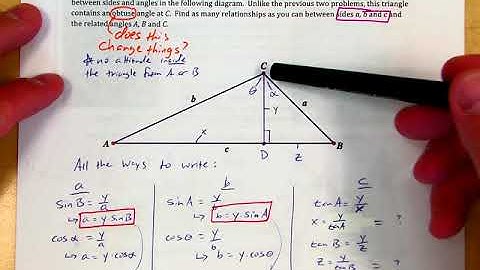 between sides and angles in the following diagram. Unlike the previous two problems, this triangle
contains an obtuse angle at C. Find as many relationships as you can between sides a, b and c and
the related angles A, B and C.
does this
change things?
no altitude inside
the triangle from A or B
C
θ α
b
a
y
x
A
c
D
z
B
All the ways to write:
a
b
c
sin B = y/a
↳ a = y·sin B
cos α = y/a
↳ a = y·cos α
sin A = y/b
↳ b = y·sin A
cos θ = y/b
↳ b = y·cos θ
tan A = y/x
x = y/tan A = ?
tan B = y/z
z = y/tan B = ?